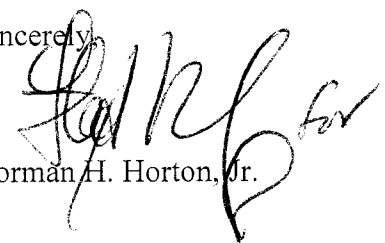 ncerely,
for
orman H. Horton, Jr.